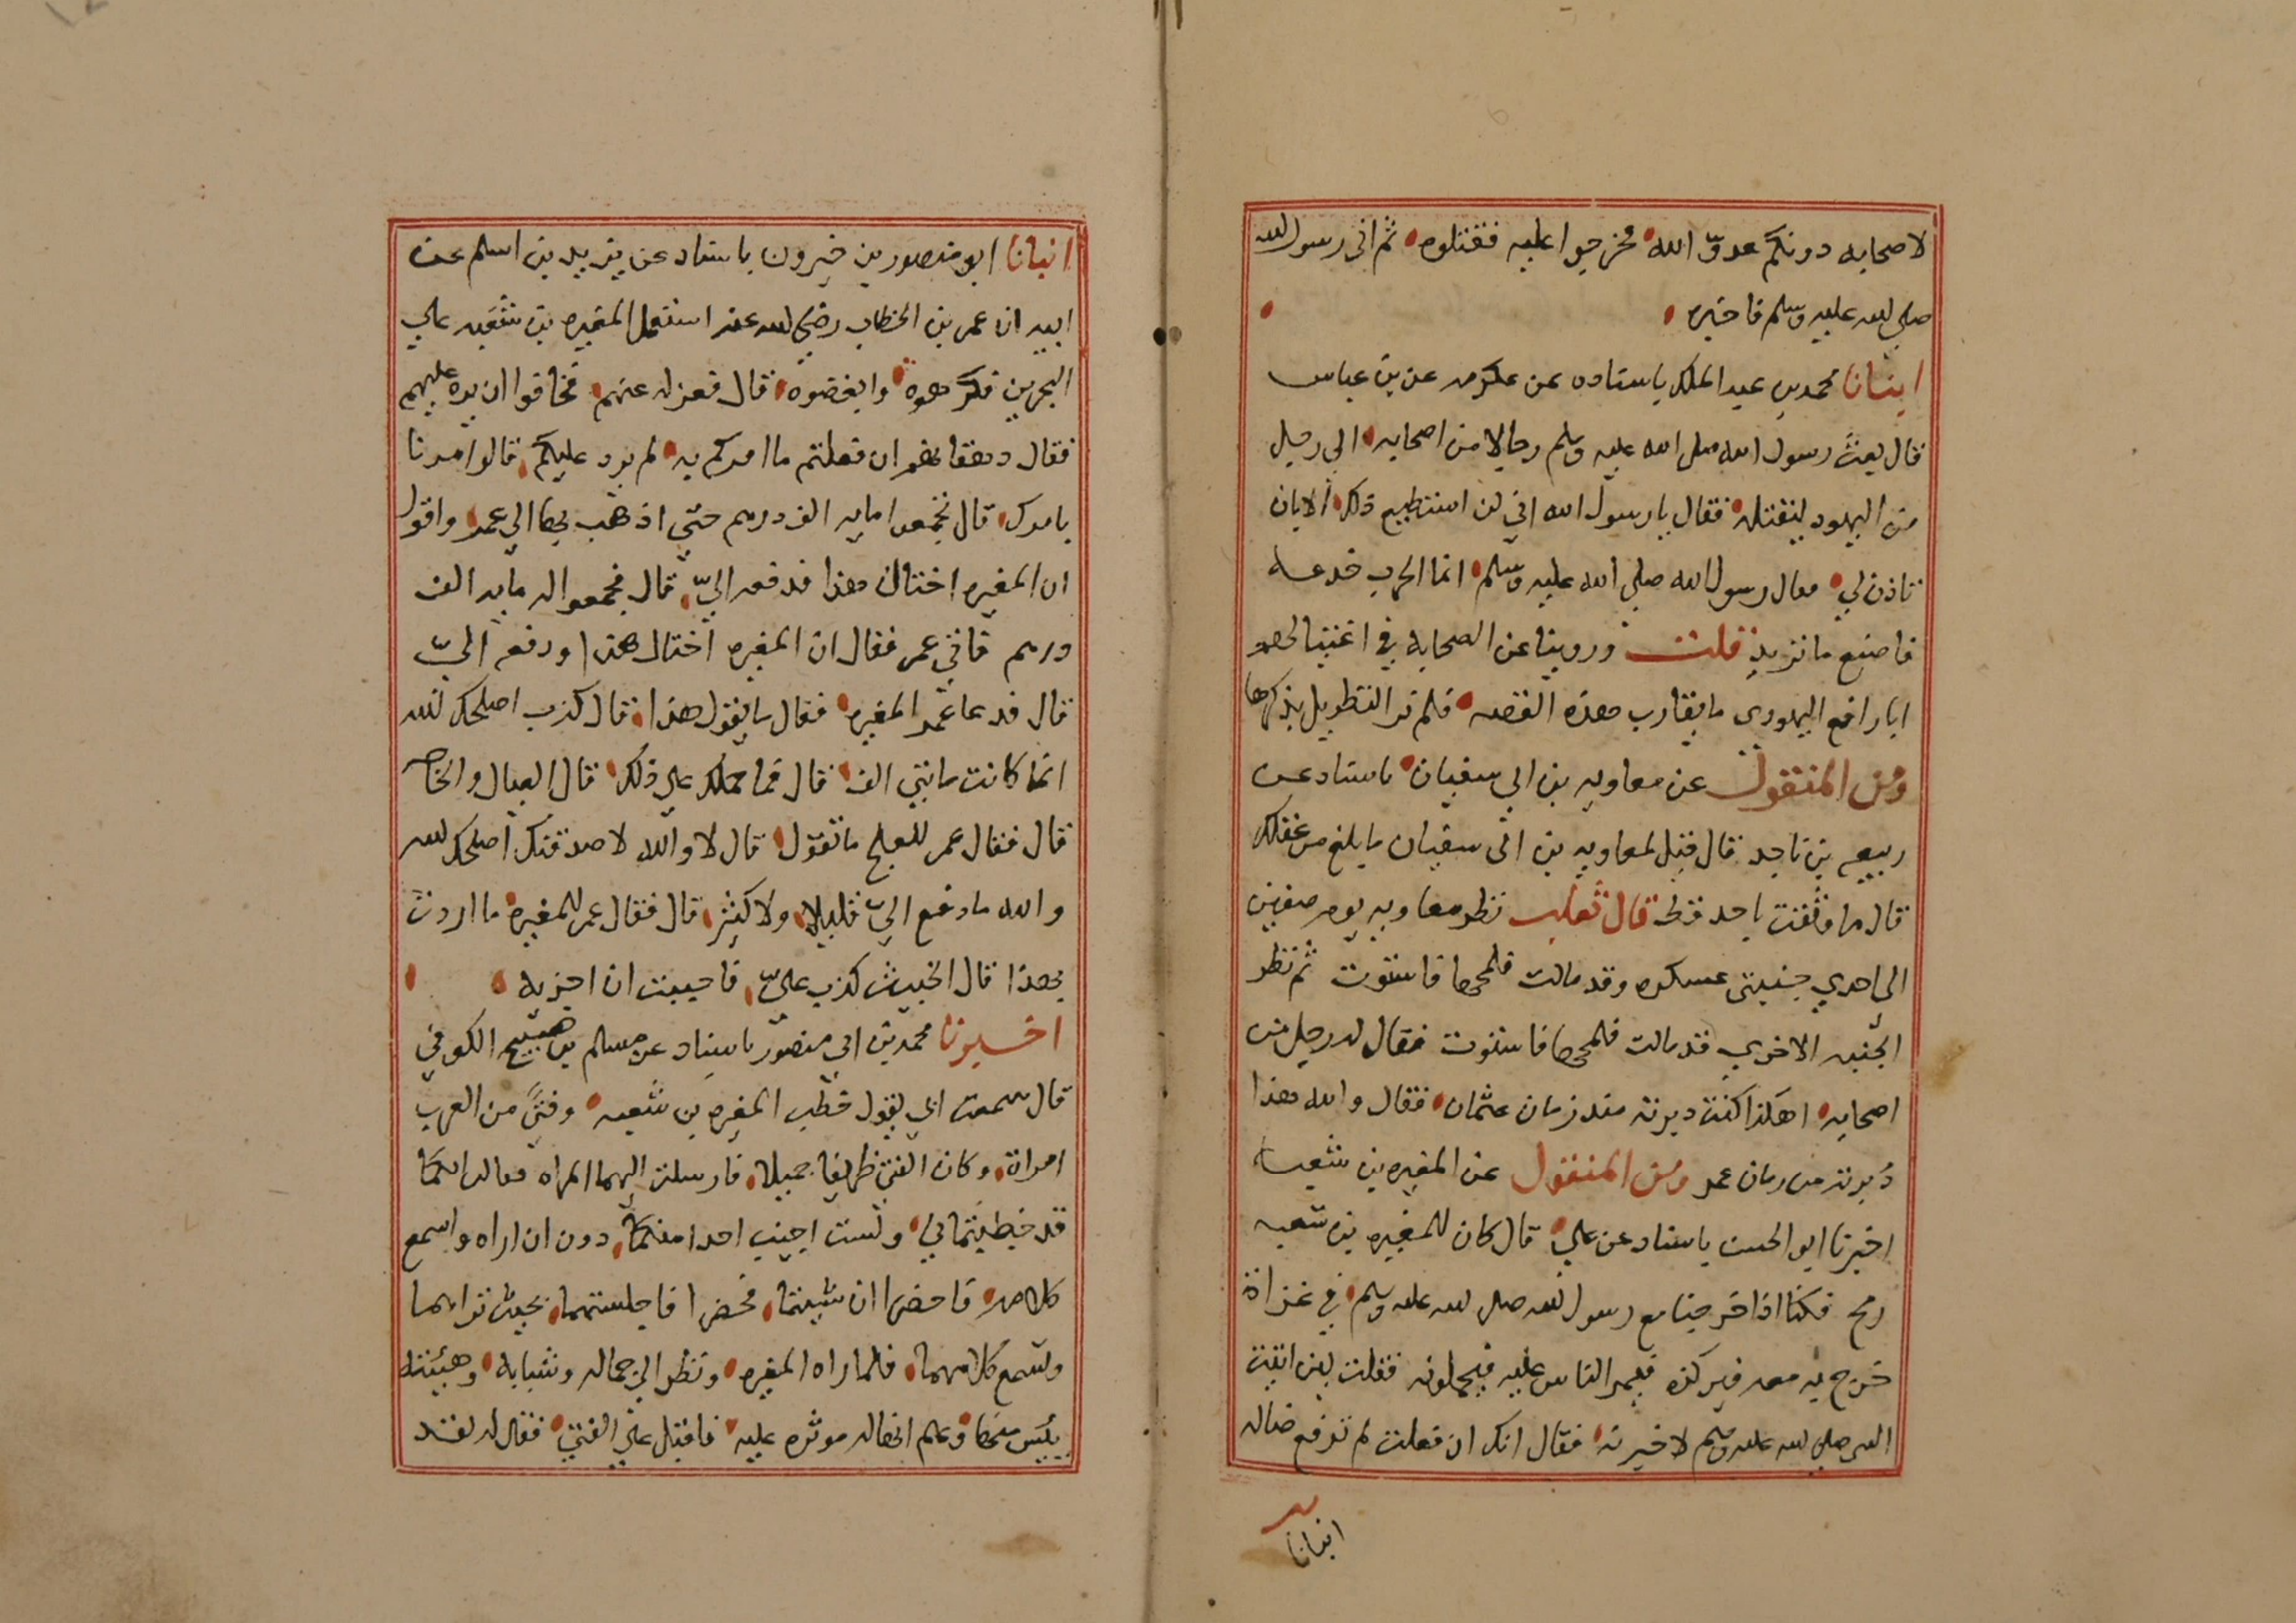 لاصحابه دونكم عدوّ الله فخرجوا عليه فقتلوه ثم اتى رسول الله
صلى الله عليه وسلم فاخبره
انبانا محمد بن عبد الملك باسناده عن عكرمه عن بن عباس
قال بعث رسول الله صلى الله عليه وسلم رجالا من اصحابه الى رجل
من اليهود ليقتله فقال يا رسول الله اني لن استطيع ذلك الا بان
تاذن لي فقال رسول الله صلي الله عليه وسلم انما الحرب خدعه
فاصنع ما تريد قلت وروينا عن الصحابه في اغتيالهم
ابا رافع اليهودي ما يقارب هذه القصه فلم نر التطويل بذكرها
ومن المنقول عن معاويه بن ابي سفيان باسناد عن
ربيعه بن ناجد قال قيل لمعاويه بن ابى سفيان ما بلغ من عقلك
قال ما وثقت باحد قط قال ثعلب نظر معاويه يوم صفين
الى احدي جنبتى عسكره وقد مالت فلمحها فاستوت ثم نظر
الجنبه الاخري قد مالت فلمحها فاستوت فقال له رجل من
اصحابه اهكذا كنت دبرته منذ زمان عثمان فقال والله هذا
دبرته من زمان عمر ومن المنقول عن المغيره بن شعبه
اخبرنا ابو الحسن باسناد عن علي قال كان للمغيره بن شعبه
رمح فكنا اذا خرجنا مع رسول الله صلى الله عليه وسلم في غزاة
خرج به معه فيركزه فيمر الناس عليه فيحملونه فقلت لين اتيت
النبى صلي الله عليه وسلم لاخبرته فقال انك ان فعلت لم ترفع ضاله
انبانا
انبانا ابو منصور بن خيرون باسناد عن بن يزيد بن اسلم عن
ابيه ان عمر بن الخطاب رضي الله عنه استعمل المغيره بن شعبه علي
البحرين فكرهوه وابغضوه قال فعزله عنهم فخافوا ان يرده عليهم
فقال دهقانهم ان فعلتم ما امركم به لم يرد عليكم قالوا امرنا
بامرك قال تجمعوا مايه الف درهم حتي اذهب بها الي عمر واقول
ان المغيره اختان هذا فدفعه اليّ قال فجمعوا له مايه الف
درهم فاتي عمر فقال ان المغيره اختال هذا ودفعه اليّ
قال فدعا عمر المغيره فقال ما يقول هذا قال كذب اصلحك الله
انما كانت مايتي الف قال فما حملك علي ذلك قال العيال والحاجه
قال فقال عمر للعلج ما تقول قال لا والله لاصدقنك اصلحك الله
والله ما دفع اليّ قليلا ولا كثير قال فقال عمر للمغيره ما اردت
بهذا قال الخبيث كذب عليّ فاحببت ان اخزيه
اخبرنا محمد بن ابي منصور باسناد عن مسلم بن صبيح الكوفي
قال سمعت ابي يقول خطب المغيره بن شعبه وفتىً من العرب
امراة وكان الفتي ظريفا جميلا فارسلت اليهما المراه فقالت انكما
قد خطبتماني ولست اجيب احدا منكما دون ان اراه واسمع
كلامه فاحضرا ان شيتما فحضرا فاجلستهما بحيث تراهما
وتسمع كلامهما فلما راه المغيره ونظر الي جماله وشبابه وهيئته
يئس منها وعلم انها له موثره عليه فاقبل علي الفتي فقال له لقد